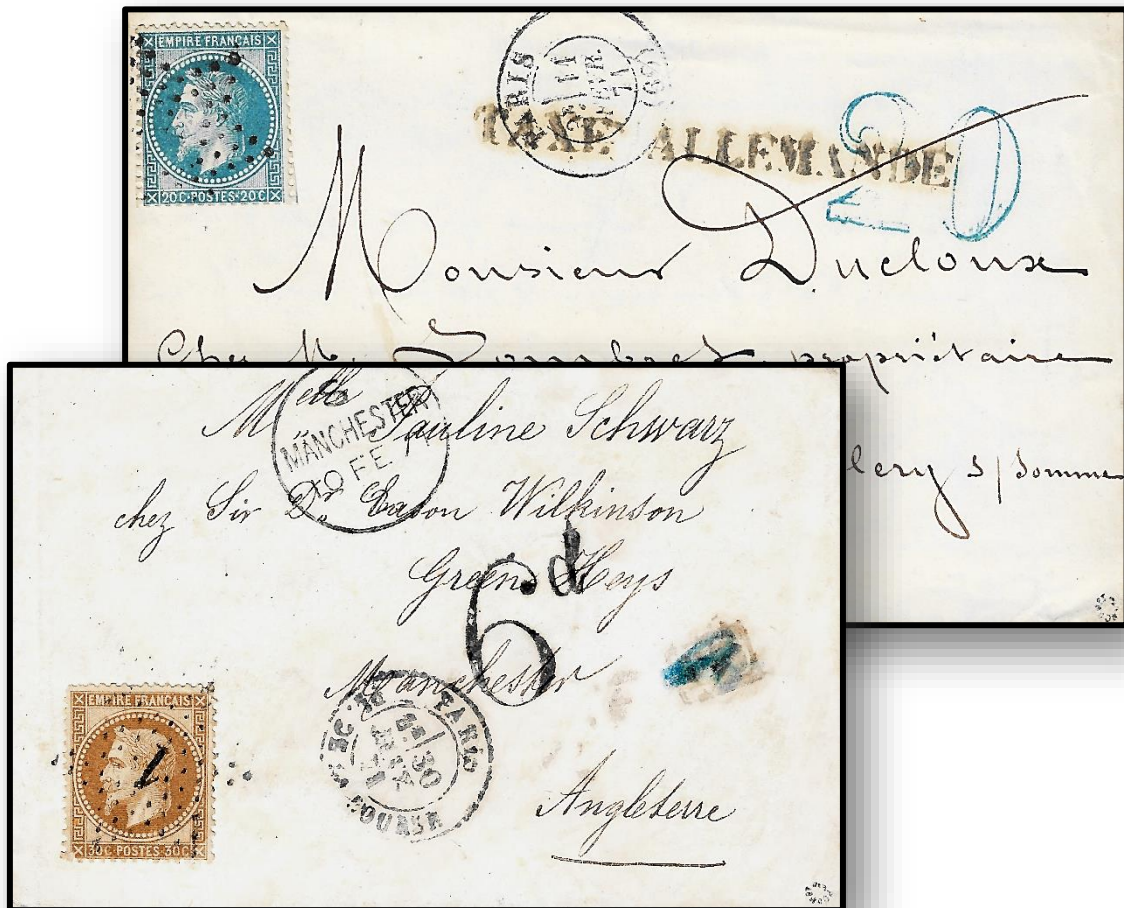 EMPIRE FRANÇAIS
20C·POSTES·20C
PARIS
TAXE ALLEMANDE
20
Monsieur Ducloux
Chez Mr propriétaire
lery s/Somme
Melle Pauline Schwarz
MANCHESTER
10 FE 71
chez Sir Dr Eason Wilkinson
Green Heys
6d
Manchester
PARIS
30
BOURSE
Angleterre
EMPIRE FRANÇAIS
1
30C·POSTES·30C